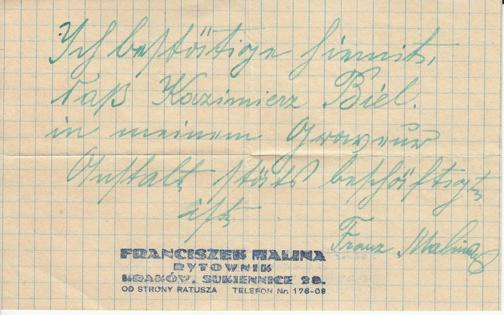 Ich bestätige hiemit,
daß Kazimierz Biel.
in meinem Graveur
Anstalt stäts beschäftigt
ist.
Franz Malina
FRANCISZEK MALINA
RYTOWNIK
KRAKÓW, SUKIENNICE 28.
OD STRONY RATUSZA TELEFON Nr. 176-08